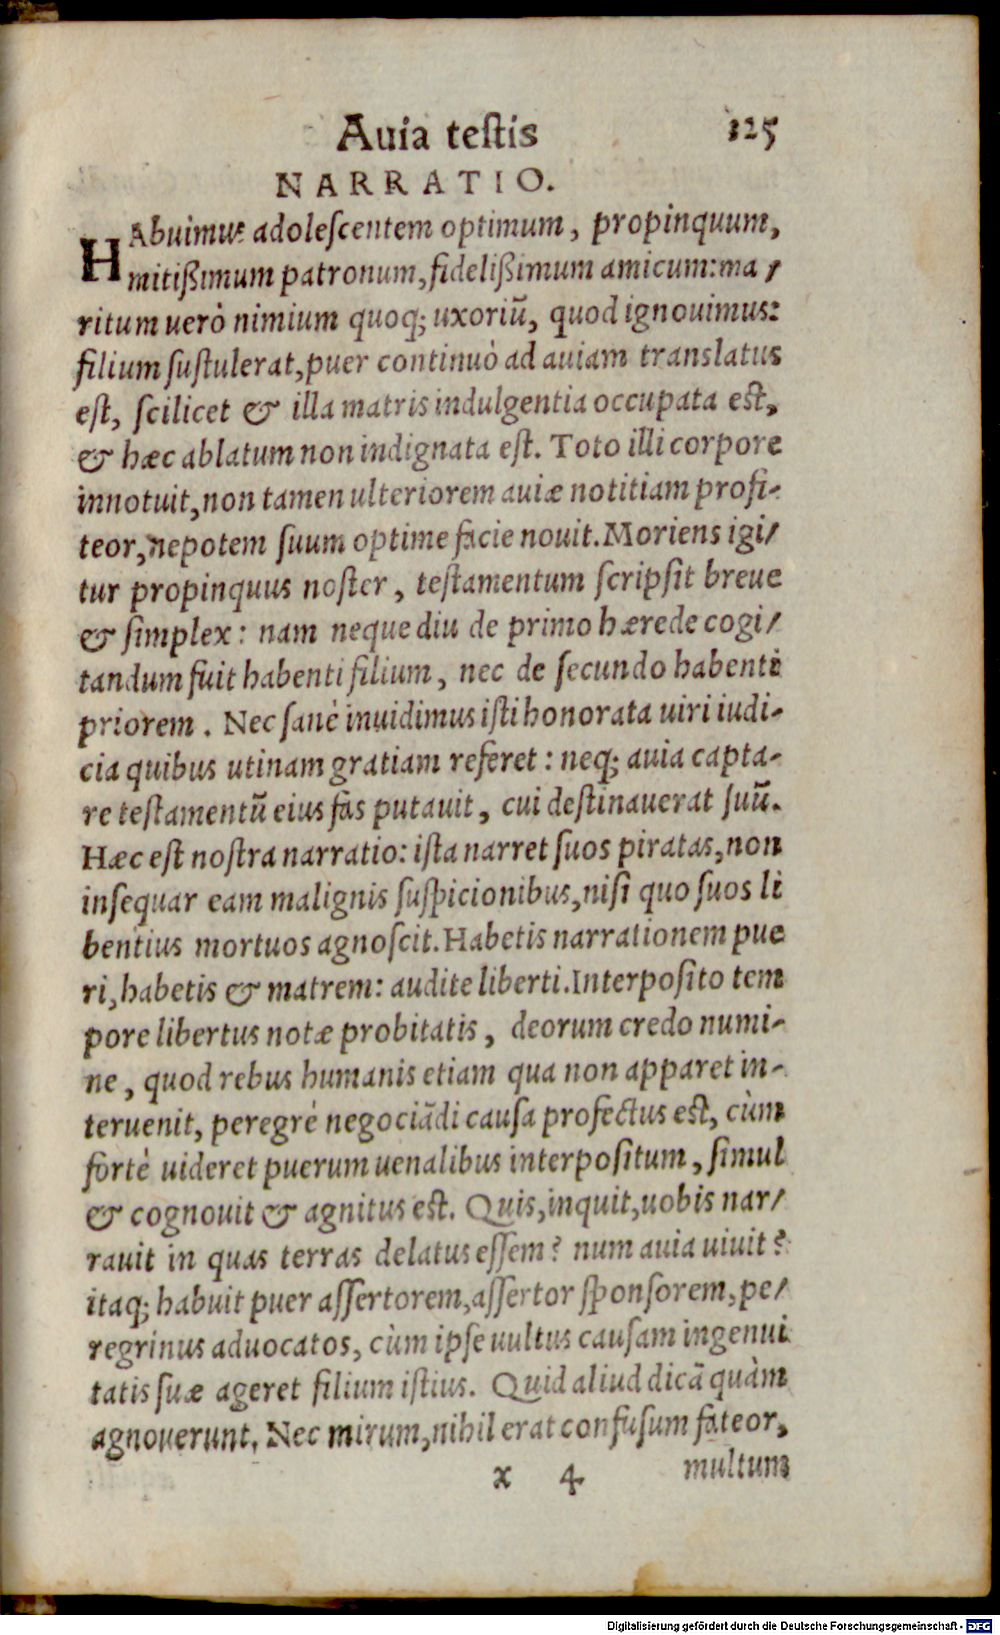 Auia teſtis 325
NARRATIO.
HAbuimus adoleſcentem optimum, propinquum,
mitiſsimum patronum, fideliſsimum amicum: ma/
ritum uerò nimium quoq; uxoriũ, quod ignouimus:
filium ſuſtulerat, puer continuò ad auiam translatus
eſt, ſcilicet & illa matris indulgentia occupata eſt,
& hæc ablatum non indignata eſt. Toto illi corpore
innotuit, non tamen ulteriorem auiæ notitiam profi-
teor, nepotem ſuum optime facie nouit. Moriens igi/
tur propinquus noſter, teſtamentum ſcripſit breue
& ſimplex: nam neque diu de primo hærede cogi/
tandum fuit habenti filium, nec de ſecundo habenti
priorem. Nec ſanè inuidimus iſti honorata uiri iudi-
cia quibus utinam gratiam referet: neq; auia capta-
re teſtamentũ eius fas putauit, cui deſtinauerat ſuũ.
Hæc eſt noſtra narratio: iſta narret ſuos piratas, non
inſequar eam malignis ſuſpicionibus, niſi quo ſuos li
bentius mortuos agnoſcit. Habetis narrationem pue
ri, habetis & matrem: audite liberti. Interpoſito tem
pore libertus notæ probitatis, deorum credo numi-
ne, quod rebus humanis etiam qua non apparet in-
teruenit, peregrè negociãdi cauſa profectus eſt, cùm
fortè uideret puerum uenalibus interpoſitum, ſimul
& cognouit & agnitus eſt. Quis, inquit, uobis nar/
rauit in quas terras delatus eſſem? num auia uiuit?
itaq; habuit puer aſſertorem, aſſertor ſponſorem, pe/
regrinus aduocatos, cùm ipſe uultus cauſam ingenui
tatis ſuæ ageret filium iſtius. Quid aliud dicã quàm
agnouerunt. Nec mirum, nihil erat confuſum fateor,
x 4 multum
Digitalisierung gefördert durch die Deutsche Forschungsgemeinschaft - DFG